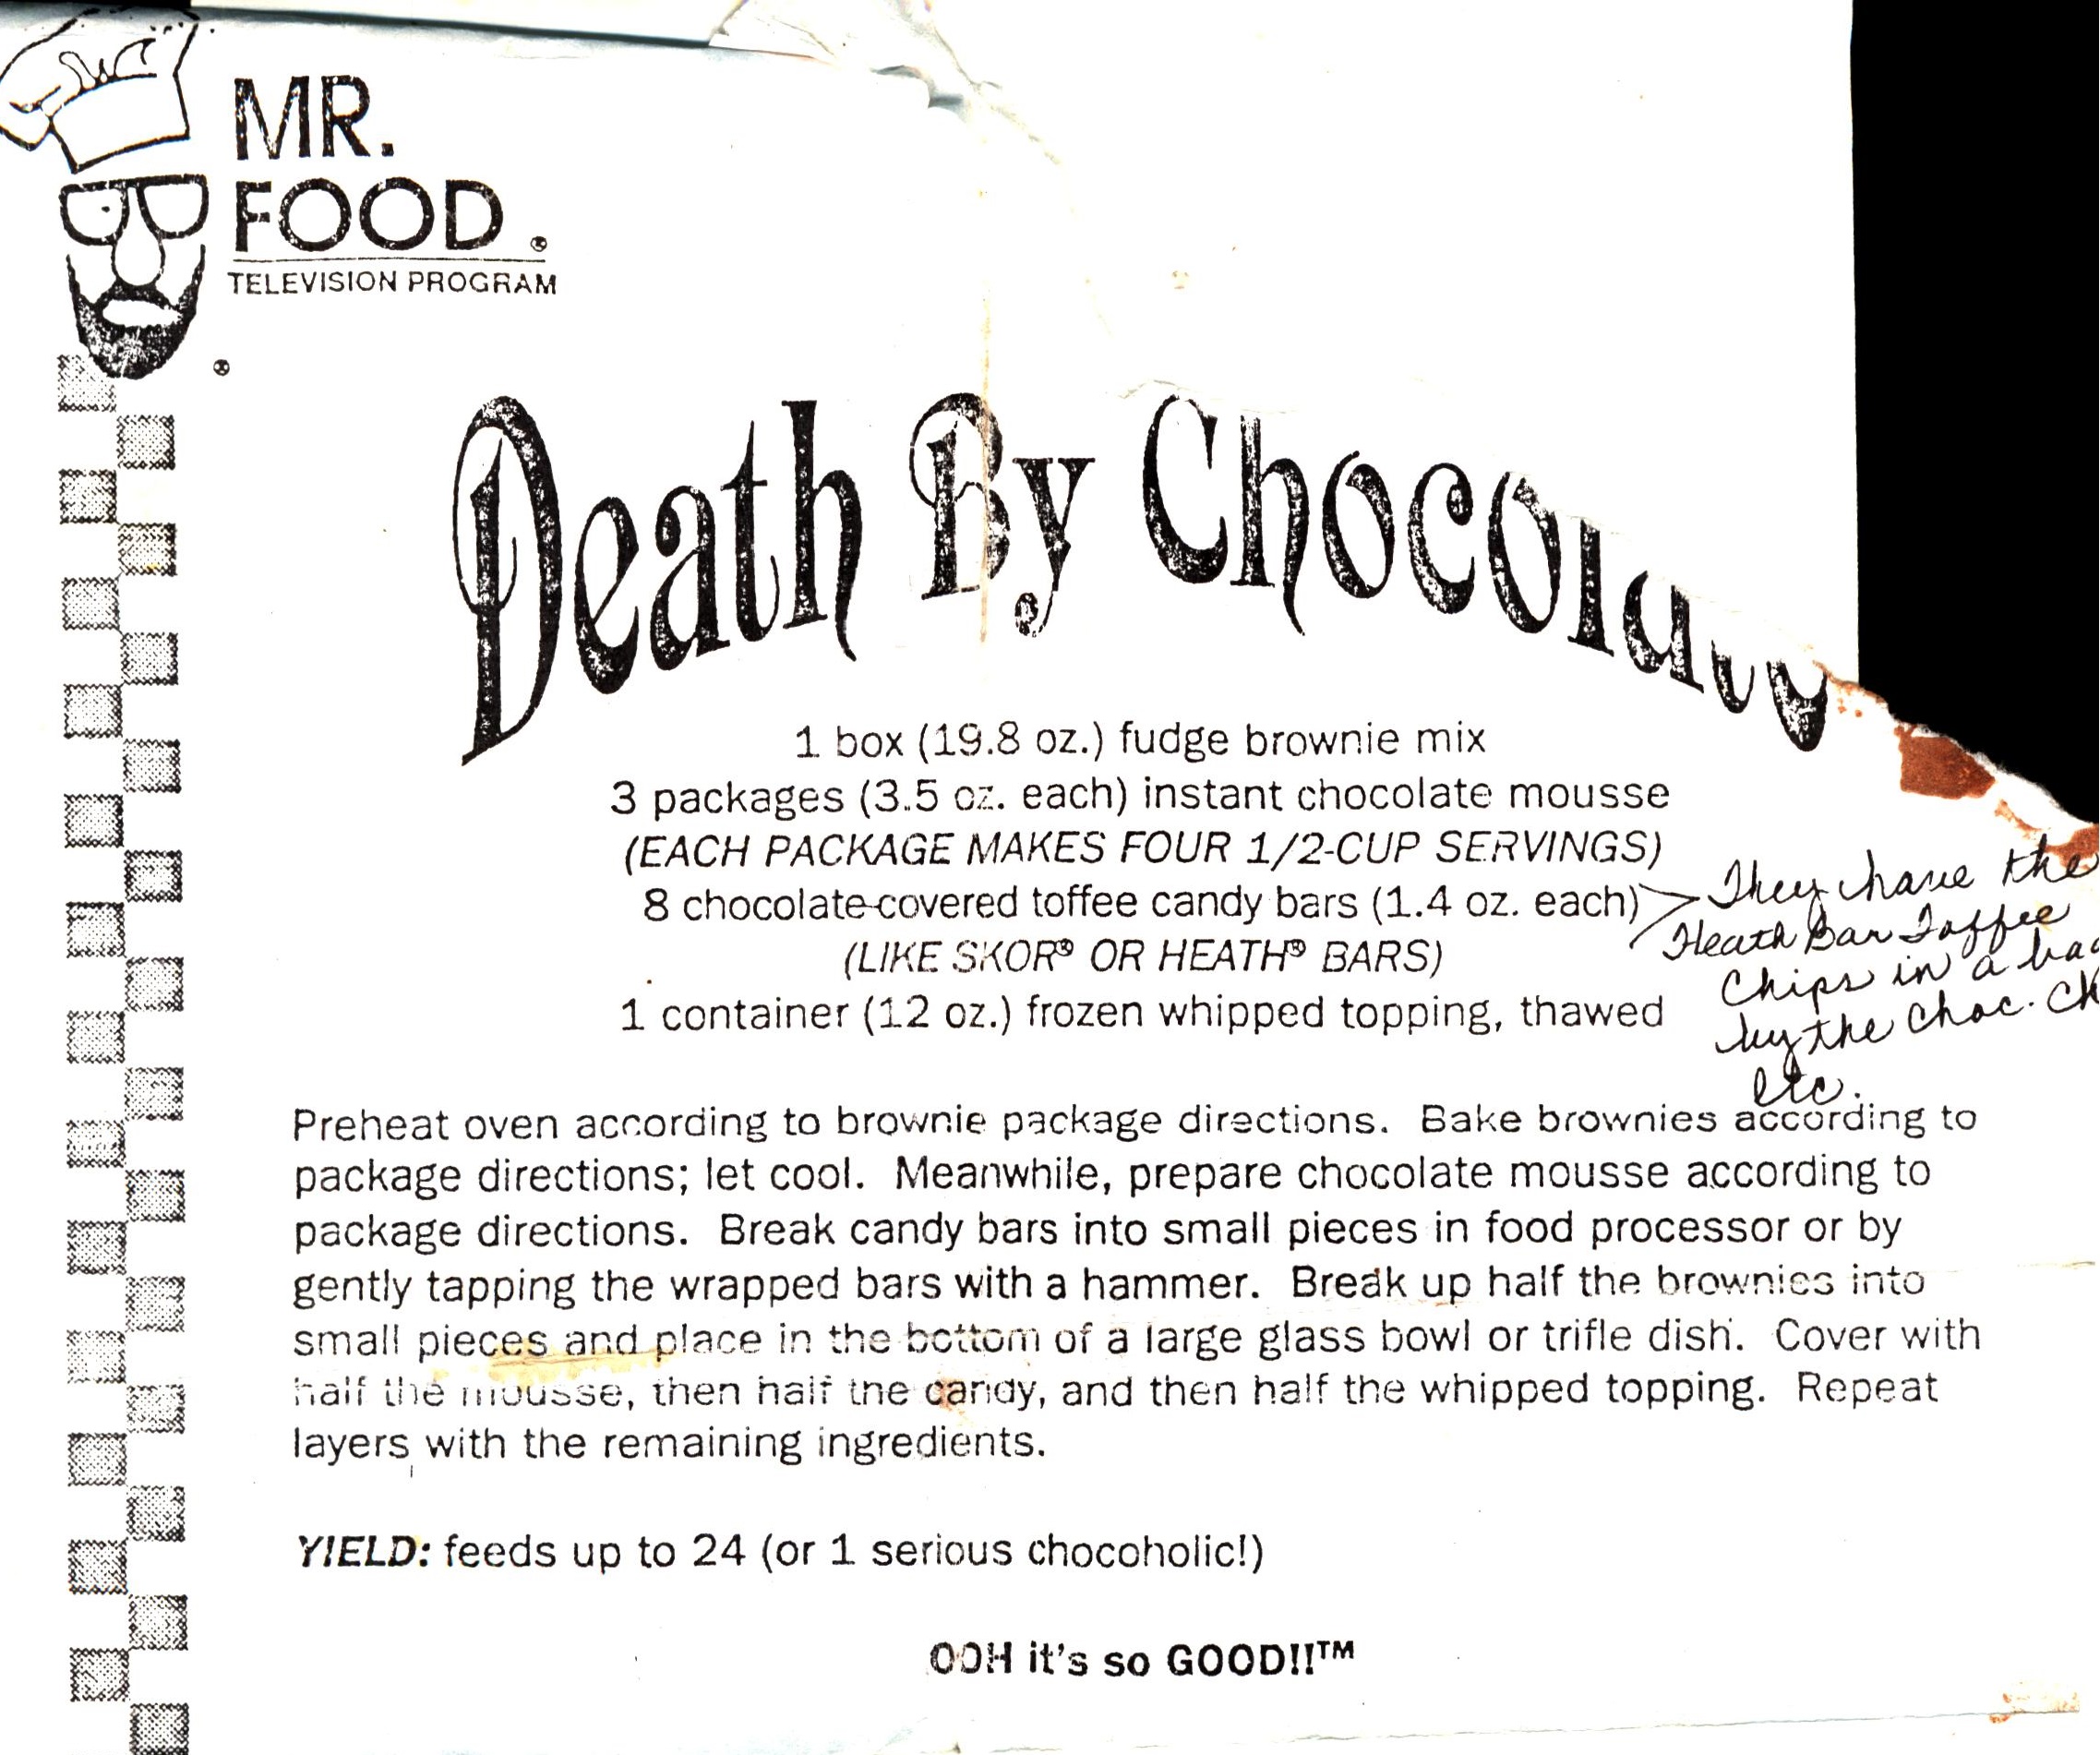 MR.
FOOD®
TELEVISION PROGRAM
®
Death By Chocolate
1 box (19.8 oz.) fudge brownie mix
3 packages (3.5 oz. each) instant chocolate mousse
(EACH PACKAGE MAKES FOUR 1/2-CUP SERVINGS)
8 chocolate-covered toffee candy bars (1.4 oz. each)
(LIKE SKOR® OR HEATH® BARS)
1 container (12 oz.) frozen whipped topping, thawed
They have the
Heath Bar Toffee
Chips in a
by the Choc.
etc.
Preheat oven according to brownie package directions. Bake brownies according to
package directions; let cool. Meanwhile, prepare chocolate mousse according to
package directions. Break candy bars into small pieces in food processor or by
gently tapping the wrapped bars with a hammer. Break up half the brownies into
small pieces and place in the bottom of a large glass bowl or trifle dish. Cover with
half the mousse, then half the candy, and then half the whipped topping. Repeat
layers with the remaining ingredients.
YIELD: feeds up to 24 (or 1 serious chocoholic!)
OOH it's so GOOD!!™